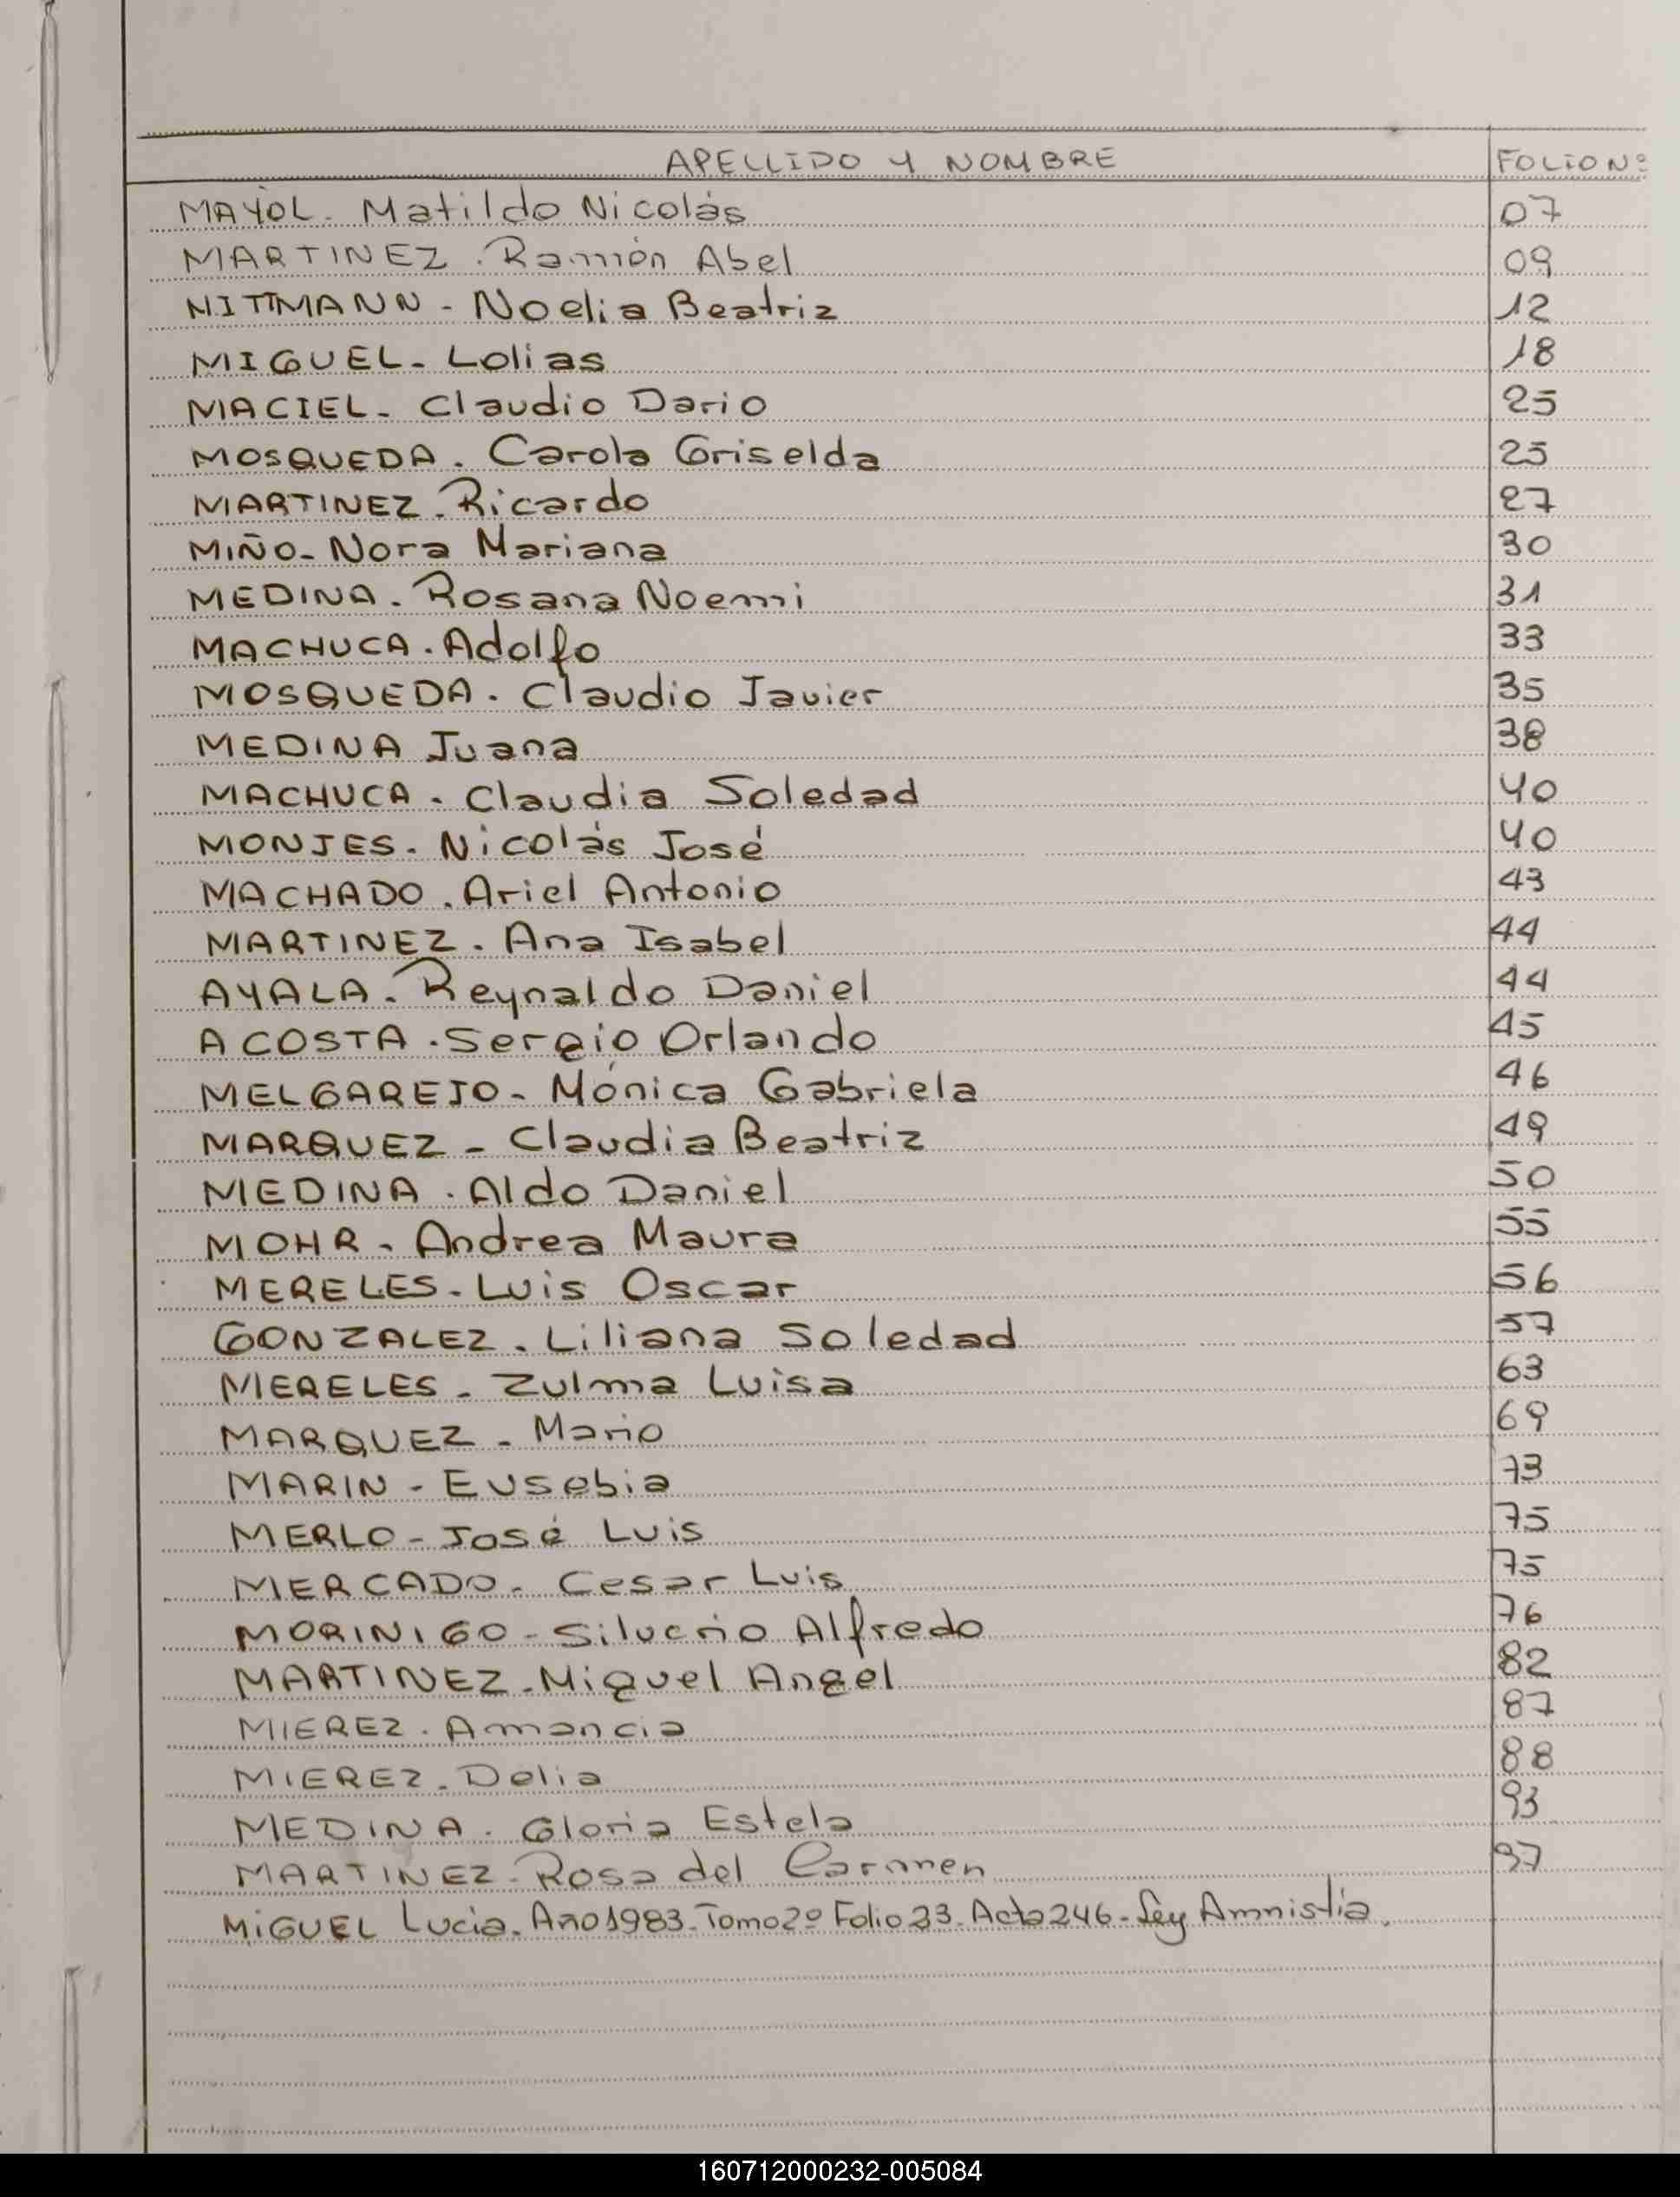 APELLIDO Y NOMBRE FOLIO Nº
MAYOL. Matildo Nicolás 07
MARTINEZ. Ramón Abel 09
MITTMANN - Noelia Beatriz 12
MIGUEL - Lolias 18
MACIEL - Claudio Dario 25
MOSQUEDA. Carola Griselda 25
MARTINEZ. Ricardo 27
MIÑO - Nora Mariana 30
MEDINA. Rosana Noemi 31
MACHUCA. Adolfo 33
MOSQUEDA. Claudio Javier 35
MEDINA Juana 38
MACHUCA. Claudia Soledad 40
MONJES. Nicolás José 40
MACHADO. Ariel Antonio 43
MARTINEZ. Ana Isabel 44
AYALA. Reynaldo Daniel 44
ACOSTA. Sergio Orlando 45
MELGAREJO - Mónica Gabriela 46
MARQUEZ - Claudia Beatriz 49
MEDINA. Aldo Daniel 50
MOHR. Andrea Maura 55
MERELES. Luis Oscar 56
GONZALEZ. Liliana Soledad 57
MERELES - Zulma Luisa 63
MARQUEZ - Mario 69
MARIN - Eusebia 73
MERLO - José Luis 75
MERCADO. Cesar Luis 75
MORINIGO - Silverio Alfredo 76
MARTINEZ. Miguel Angel 82
MIEREZ. Amancia 87
MIEREZ. Delia 88
MEDINA. Gloria Estela 93
MARTINEZ. Rosa del Carmen 97
MIGUEL Lucia. Año 1983. Tomo 2º Folio 23. Acta 246 - Ley Amnistia.
160712000232-005084